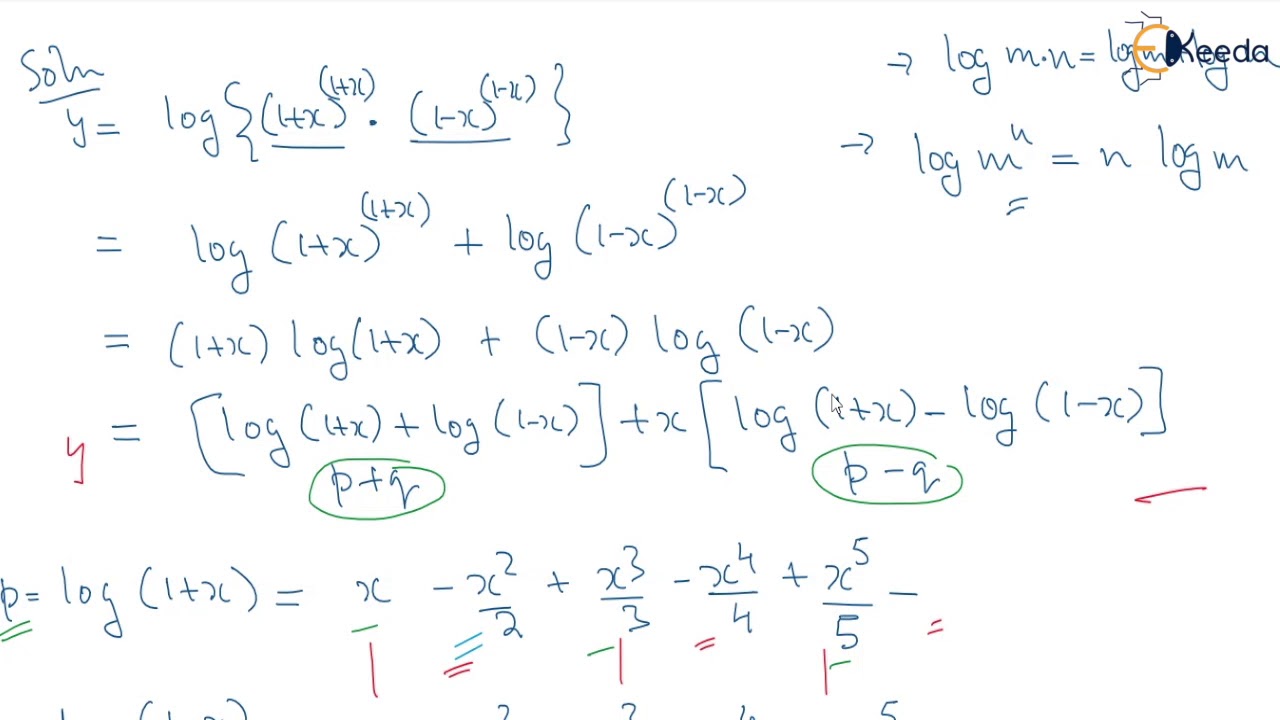 Soln
y = log{(1+x)^(1+x) · (1-x)^(1-x)}
→ log m·n = log m
Keeda
→ log m^n = n log m
= log (1+x)^(1+x) + log (1-x)^(1-x)
= (1+x) log(1+x) + (1-x) log (1-x)
y = [log (1+x) + log (1-x)] + x [log (1+x) - log (1-x)]
p+q p-q
p = log (1+x) = x - x^2/2 + x^3/3 - x^4/4 + x^5/5 -